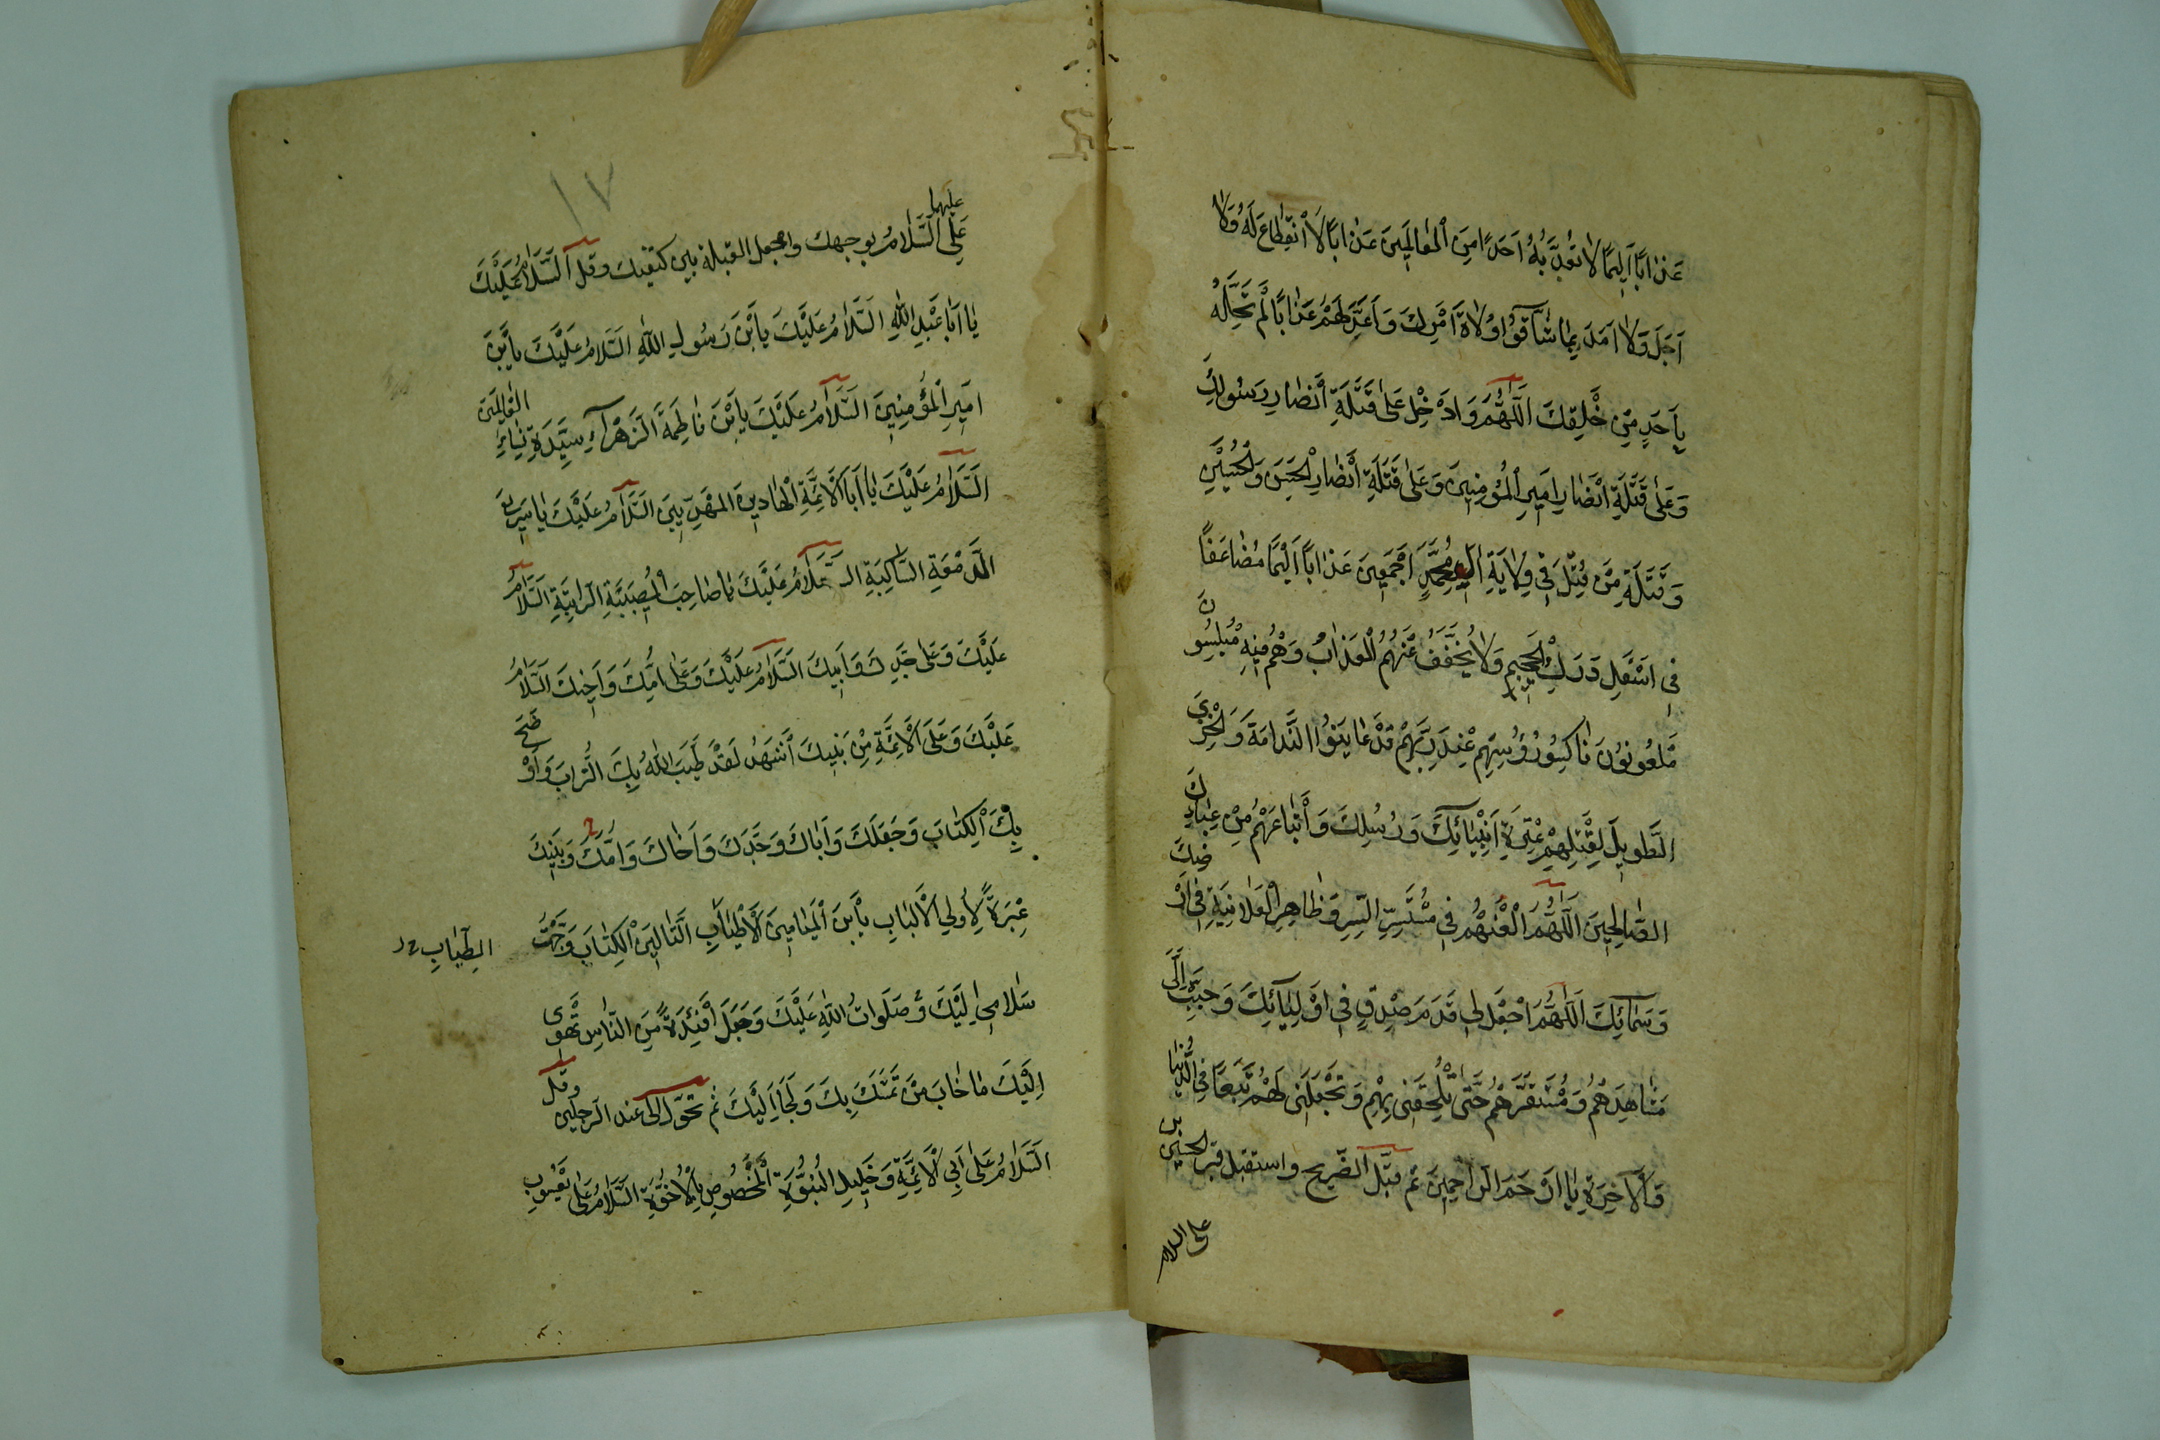 عَذَابًا اَلِيمًا لَا تُعَذِّبُهُ اَحَدًا مِنَ الْعَالَمِينَ عَذَابًا لَا انْقِطَاعَ لَهُ وَلَا
اَجَلَ وَلَا اَمَدَ بِمَا شَآقُّوا وُلَاةَ اَمْرِكَ وَاَعِدَّ لَهُمْ عَذَابًا لَمْ تُحِلَّهُ
بِاَحَدٍ مِنْ خَلْقِكَ اَللّٰهُمَّ وَادْخِلْ عَلَى قَتَلَةِ اَنْصَارِ رَسُولِكَ
وَعَلَى قَتَلَةِ اَنْصَارِ اَمِيرِ الْمُؤْمِنِينَ وَعَلَى قَتَلَةِ اَنْصَارِ الْحَسَنِ وَالْحُسَيْنِ
وَقَتَلَةِ مَنْ قُتِلَ فِي وِلَايَةِ الِ مُحَمَّدٍ اَجْمَعِينَ عَذَابًا اَلِيْمًا مُضَاعَفًا
فِي اَسْفَلِ دَرَكِ الْجَحِيمِ وَلَا يُخَفَّفُ عَنْهُمُ الْعَذَابُ وَهُمْ فِيْهِ مُبْلِسُونَ
مَلْعُونُونَ نَاكِسُو رُؤُسِهِمْ عِنْدَ رَبِّهِمْ قَدْ عَايَنُوا النَّدَامَةَ وَالْخِزْيَ
الطَّوِيلَ لِقَتْلِهِمْ عِتْرَةَ اَنْبِيَائِكَ وَرُسُلِكَ وَاَتْبَاعَهُمْ مِنْ عِبَادِكَ
الصَّالِحِينَ اَللّٰهُمَّ الْعَنْهُمْ فِي مُسْتَسِرِّ السِّرِ وَظَاهِرِ الْعَلَانِيَةِ فِي اَرْضِكَ
وَسَمَآئِكَ اَللّٰهُمَّ اجْعَلْ لِي قَدَمَ صِدْقٍ فِي اَوْلِيَآئِكَ وَحَبِّبْ اِلَيَّ
مَشَاهِدَهُمْ وَمُسْتَقَرَّهُمْ حَتّٰى تُلْحِقَنِي بِهِمْ وَتَجْعَلَنِي لَهُمْ تَبَعًا فِي الدُّنْيَا
وَالْاٰخِرَةِ يَا اَرْحَمَ الرَّاحِمِينَ ثم قبّل الضريح واستقبل قبر الحسين بن
على السلام
١٧
عليهما
على السَّلَامُ بوجهك واجعل القبلة بين كتفيك وقل اَلسَّلَامُ عَلَيْكَ
يَا اَبَا عَبْدِ اللّٰهِ السَّلَامُ عَلَيْكَ يَا بْنَ رَسُولِ اللّٰهِ السَّلَامُ عَلَيْكَ يَا بْنَ
اَمِيرِ الْمُؤْمِنِينَ السَّلَامُ عَلَيْكَ يَا بْنَ فَاطِمَةَ الزَّهْرَآءِ سَيِّدَةِ نِسَاءِ الْعَالَمِينَ
السَّلَامُ عَلَيْكَ يَا اَبَا الْاَئِمَّةِ الْهَادِينَ الْمَهْدِيِّينَ السَّلَامُ عَلَيْكَ يَا صَرِيعَ
الدَّمْعَةِ السَّاكِبَةِ السَّلَامُ عَلَيْكَ يَا صَاحِبَ الْمُصِيبَةِ الرَّاتِبَةِ السَّلَامُ
عَلَيْكَ وَعَلَى جَدِّكَ وَاَبِيكَ السَّلَامُ عَلَيْكَ وَعَلَى اُمِّكَ وَاَخِيكَ السَّلَامُ
عَلَيْكَ وَعَلَى الْاَئِمَّةِ مِنْ بَنِيكَ اَشْهَدُ لَقَدْ طَيَّبَ اللّٰهُ بِكَ التُّرَابَ وَاَوْضَحَ
بِكَ الْكِتَابَ وَجَعَلَكَ وَاَبَاكَ وَجَدَّكَ وَاَخَاكَ وَاُمَّكَ وَبَنِيكَ
عِبْرَةً لِاُولِي الْاَلْبَابِ يَا بْنَ الْمَيَامِينَ الْاَطْيَابِ التَّالِينَ الْكِتَابَ وَجَّهْتُ
الطِّيَابِ
سَلَامِي اِلَيْكَ وَصَلَوَاتُ اللّٰهِ عَلَيْكَ وَجَعَلَ اَفْئِدَةً مِنَ النَّاسِ تَهْوِى
اِلَيْكَ مَا خَابَ مَنْ تَمَسَّكَ بِكَ وَلَجَأَ اِلَيْكَ ثم تحوّل الى عند الرجلين وقل
السَّلَامُ عَلَى اَبِي الْاَئِمَّةِ وَخَلِيلِ النُّبُوَّةِ الْمَخْصُوصِ بِالْاُخُوَّةِ السَّلَامُ عَلَى يَعْسُوبِ